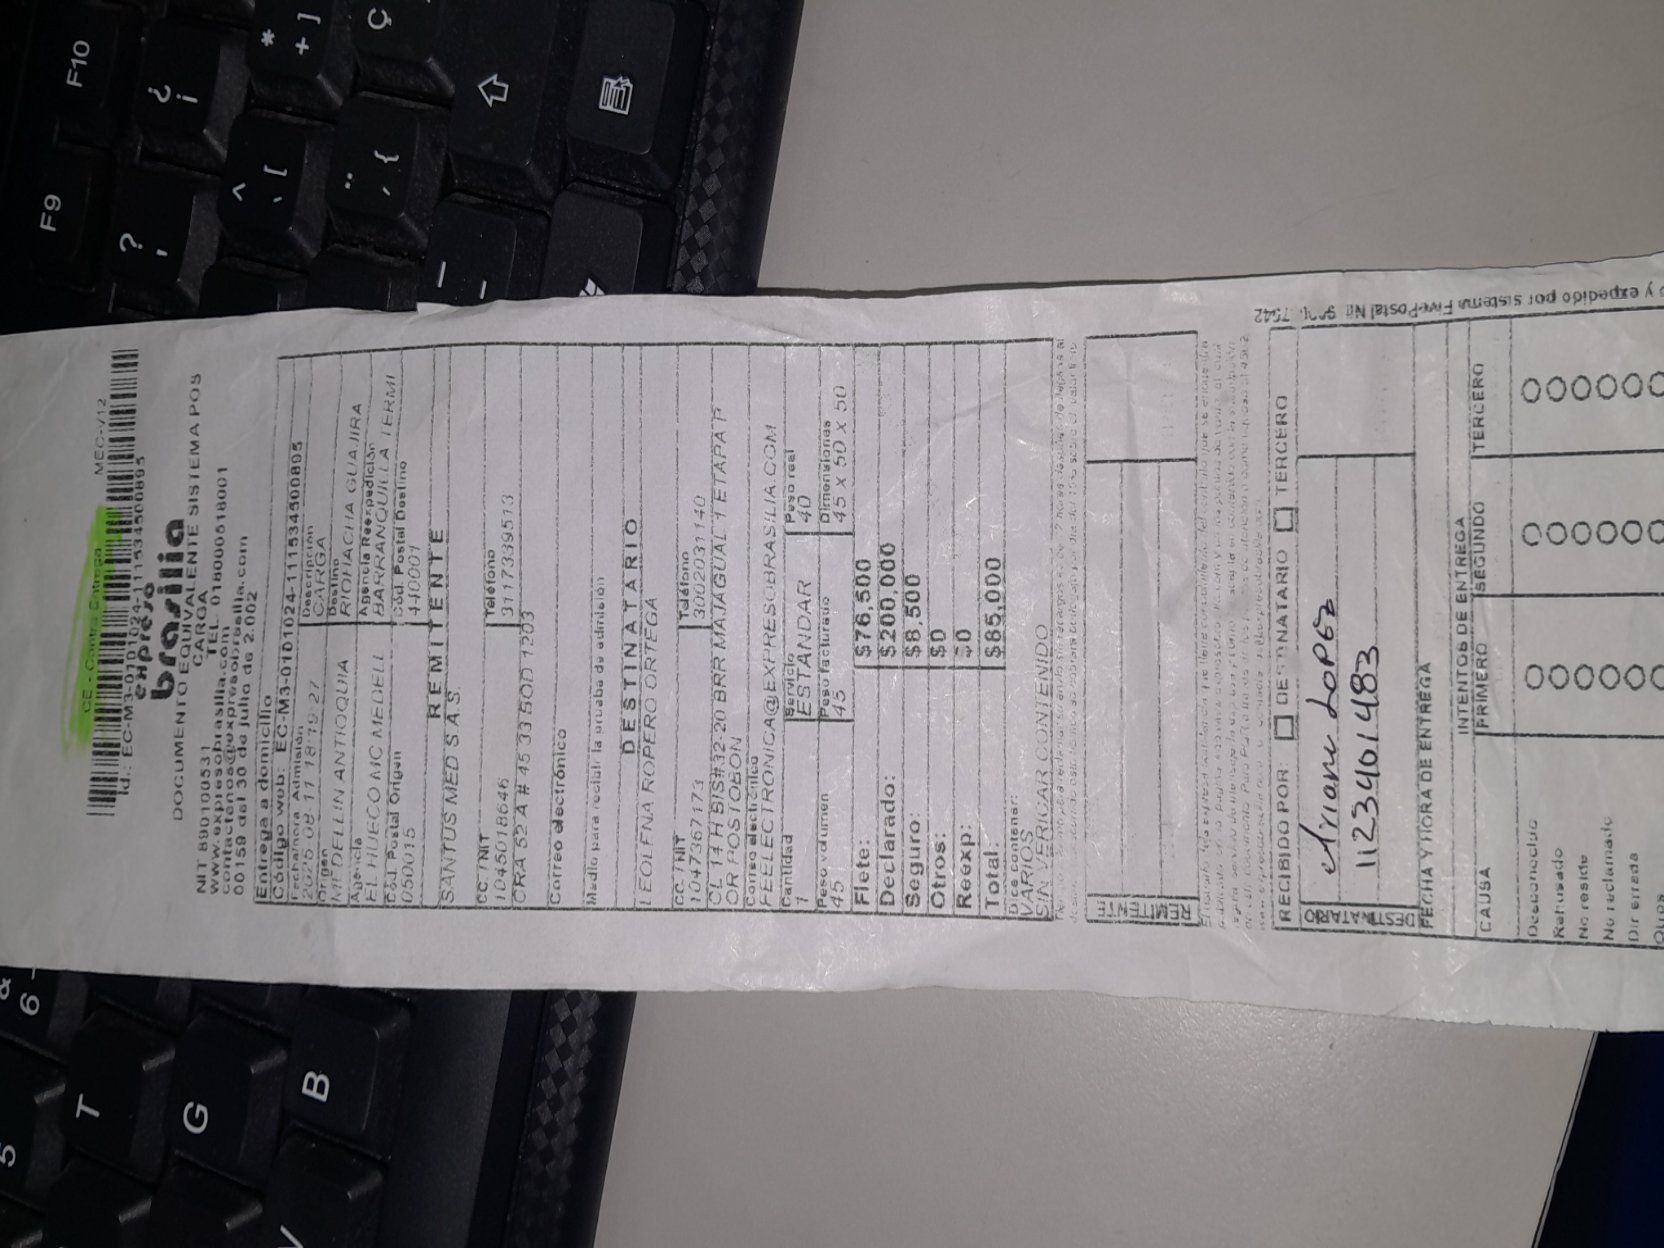 CE - Contra Entrega
MEC-V12
Id.: EC-M3-0101024-111534500895
expreso
brasilia
DOCUMENTO EQUIVALENTE SISTEMA POS
CARGA
NIT 890100531
TEL. 018000518001
www.expresobrasilia.com
contactenos@expresobrasilia.com
00159 del 30 de julio de 2.002
Entrega a domicilio
Código web: EC-M3-0101024-111534500895
Fecha/hora Admisión
Descripción
2025 08 11 18:19:27
CARGA
Origen
Destino
MEDELLIN ANTIOQUIA
RIOHACHA GUAJIRA
Agencia
Agencia Reexpedición
EL HUECO MC MEDELL
BARRANQUILLA TERMI
Cód. Postal Origen
Cód. Postal Destino
050015
440001
REMITENTE
SANTUS MED S.A.S.
CC. / NIT
Teléfono
1045018646
3117339513
CRA 52 A # 45 33 BOD 1203
Correo electrónico
Medio para recibir la prueba de admisión
DESTINATARIO
LEOLFNA ROPERO ORTEGA
CC. / NIT
Teléfono
1047367173
3002031140
CL 14 H BIS#32-20 BRR MAJAGUAL 1 ETAPA P
OR POSTOBON
Correo electrónico
FEELECTRONICA@EXPRESOBRASILIA.COM
Cantidad
Servicio
Peso real
1
ESTANDAR
40
Peso volumen
Peso facturado
Dimensiones
45
45
45 X 50 X 50
Flete:
$76,500
Declarado:
$200,000
Seguro:
$8,500
Otros:
$0
Reexp:
$0
Total:
$85,000
Dice contener:
VARIOS
SIN VERIGAR CONTENIDO
REMITENTE
RECIBIDO POR:
DESTINATARIO
TERCERO
DESTINATARIO
Ariano LoPEz
1123401483
FECHA Y HORA DE ENTREGA
INTENTOS DE ENTREGA
CAUSA
PRIMERO
SEGUNDO
TERCERO
Desconocido
Rehusado
No reside
No reclamado
Dir errada
Otros
y expedido por sistema FivePostal Nit
7542
F9
F10
T
G
B
V
5
&
6